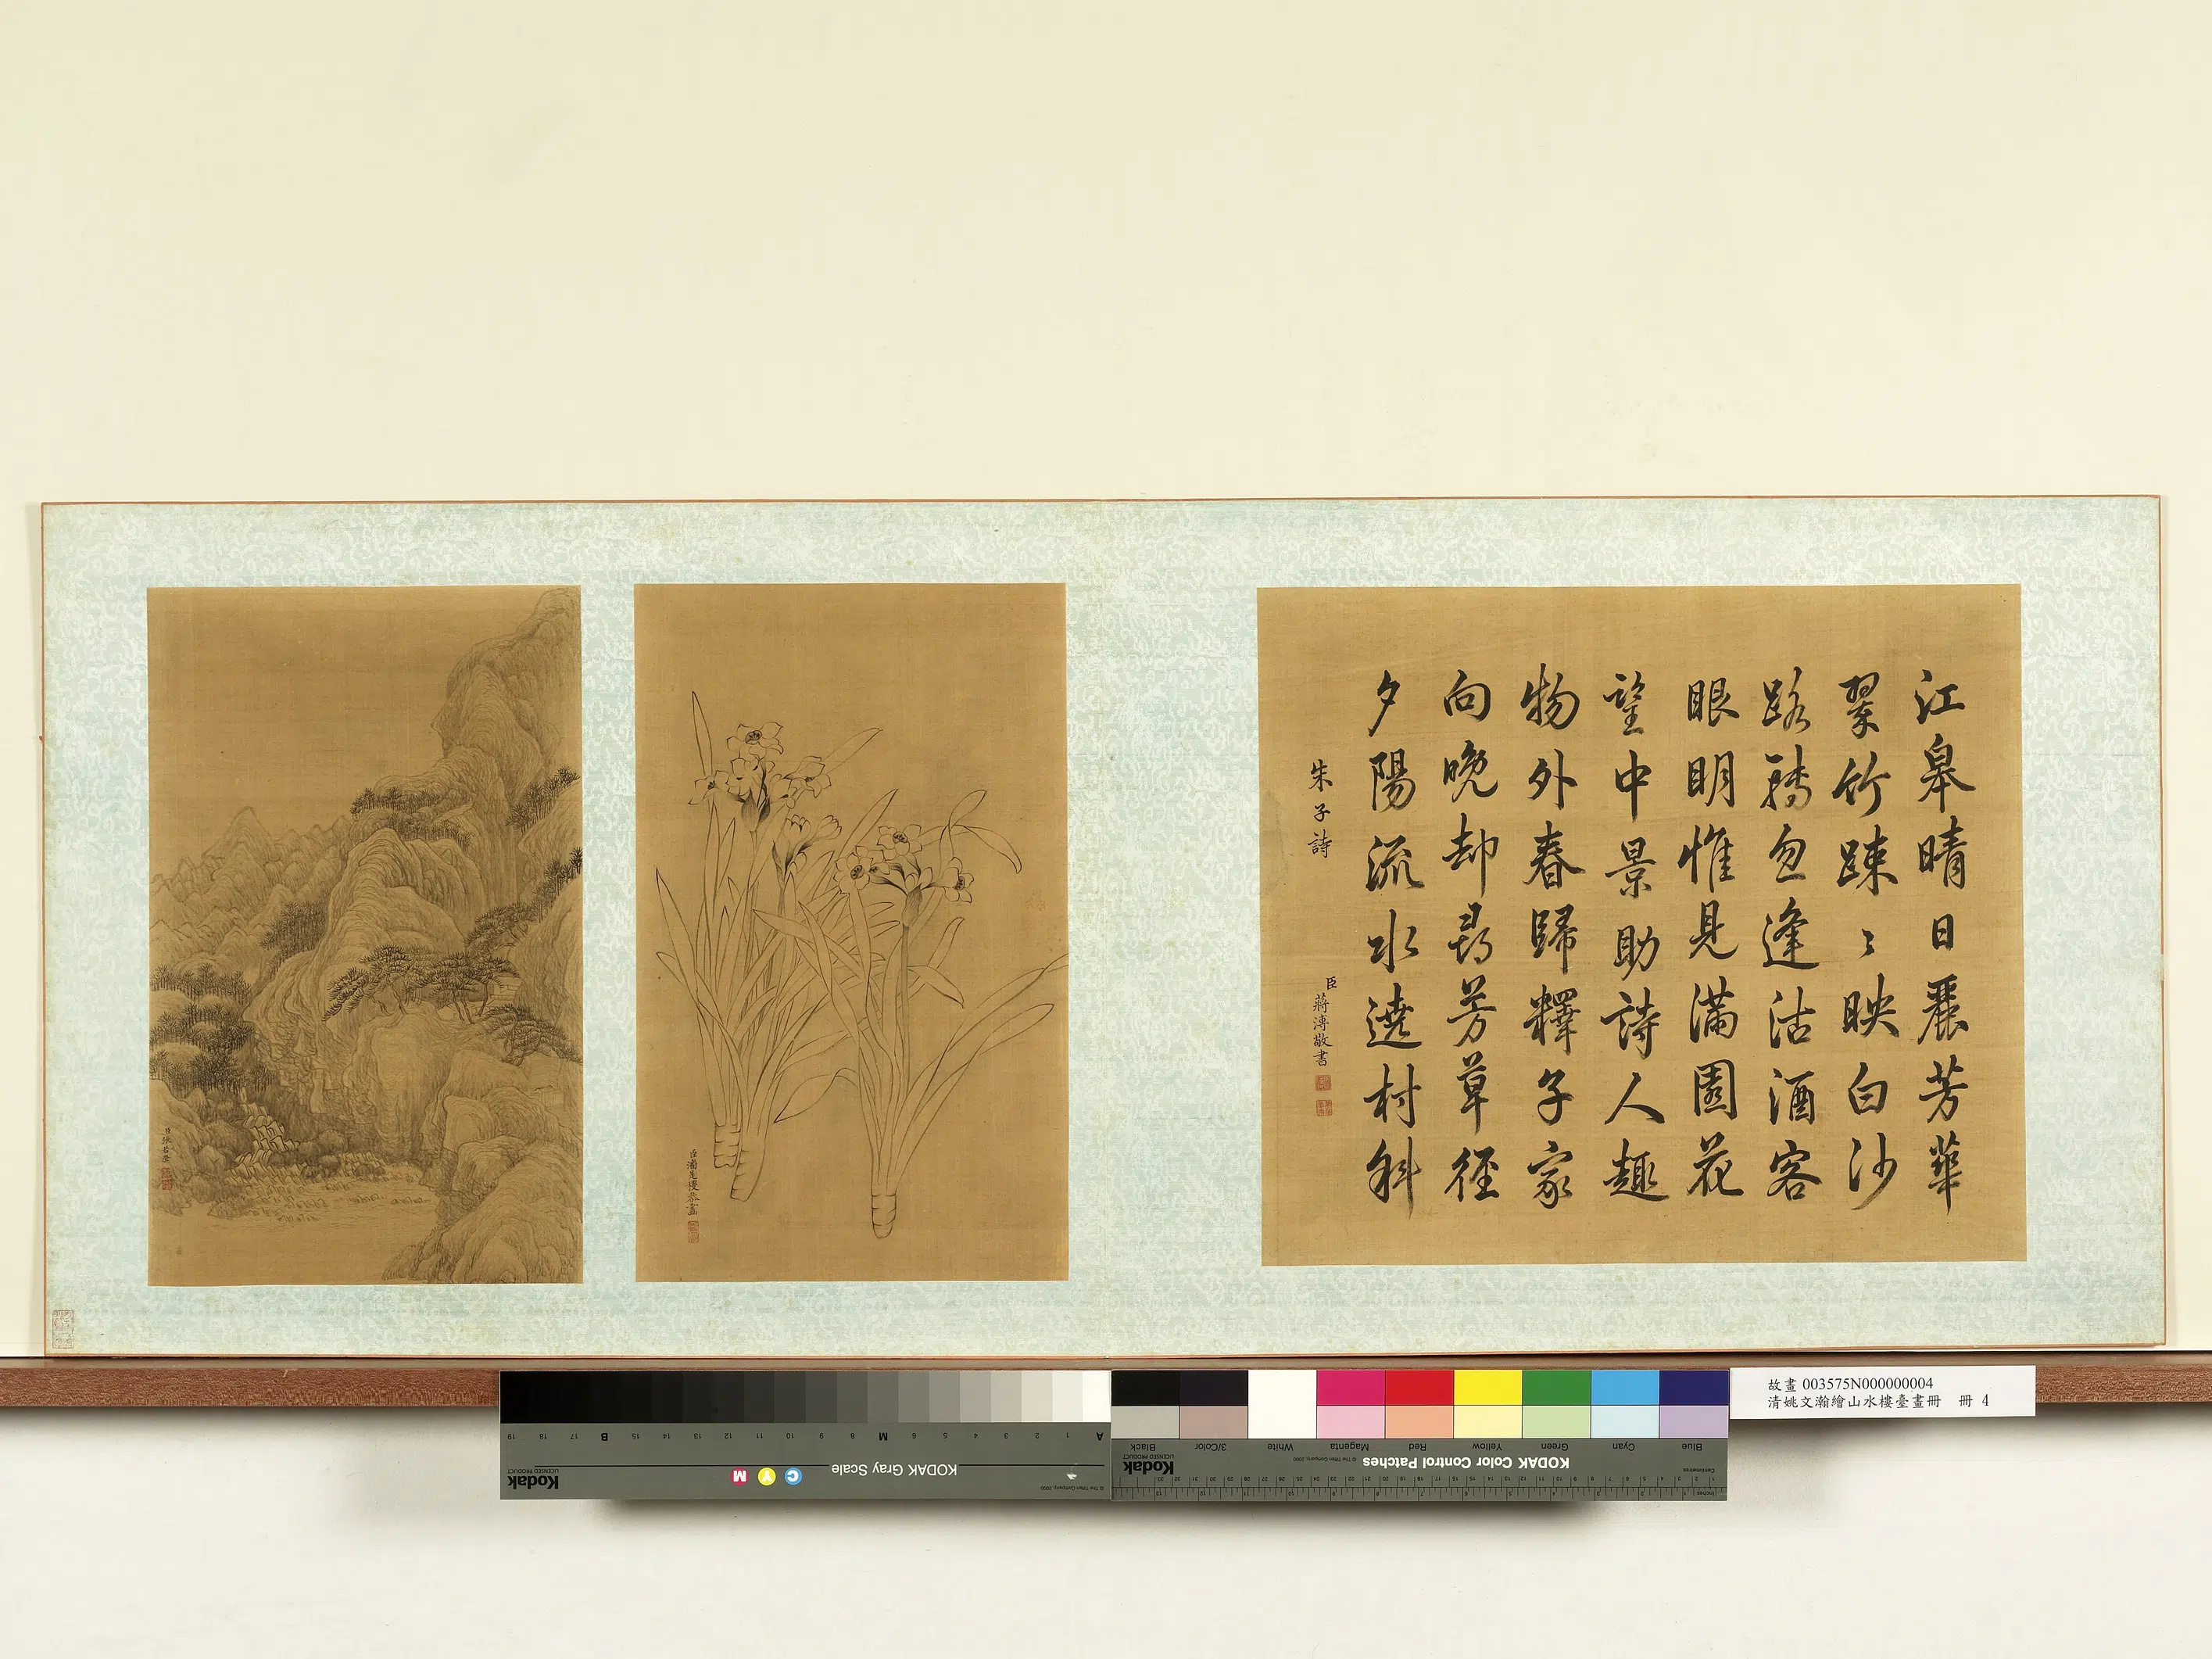 江皋晴日麗芳華
翠竹踈〻映白沙
路轉忽逢沽酒客
眼明惟見滿園花
望中景助詩人趣
物外春歸釋子家
向晚却尋芳草徑
夕陽流水遶村斜
朱子詩
臣蔣溥敬書
臣潘是稷恭畫
臣張若
故畫 003575N000000004
清姚文瀚繪山水樓臺畫冊 冊 4
KODAK Gray Scale
C Y M
Kodak
LICENSED PRODUCT
A 1 2 3 4 5 6 M 8 9 10 11 12 13 14 15 B 17 18 19
© The Tiffen Company, 2000
KODAK Color Control Patches
© The Tiffen Company, 2000
Kodak
LICENSED PRODUCT
Blue Cyan Green Yellow Red Magenta White 3/Color Black
Centimetres
Inches